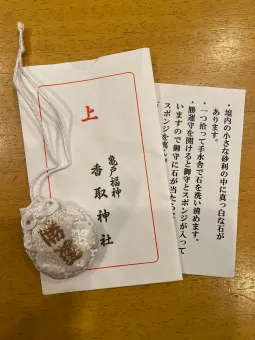 上
亀戸福神
香取神社
勝運
・境内の小さな砂利の中に真っ白な石が
あります。
・一つ拾って手水舎で石を洗い清めます。
・勝運守を開けると御守とスポンジが入って
いますので御守に石が当たら
スポンジを